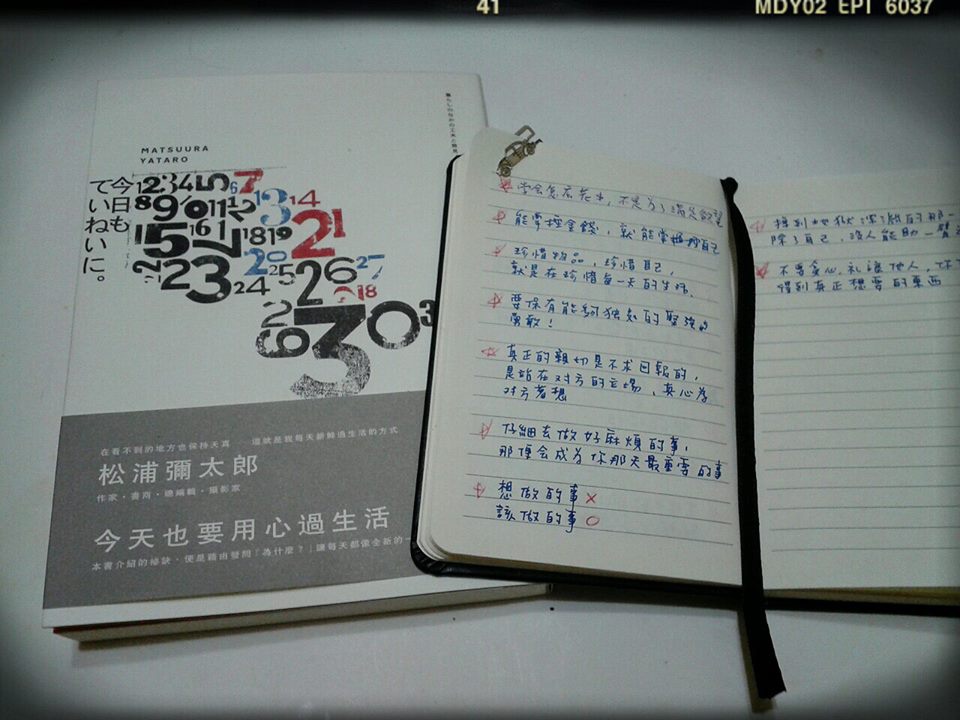 41
MDY02 EPI 6037
MATSUURA
YATARO
今日も
ていねいに。
1 2 3 4 5 6 7
8 9 10 11 12 13 14
15 16 17 18 19 20 21
22 23 24 25 26 27 28
29 30 3
在看不到的地方也保持天真 這就是我每天新鮮過生活的方式
松浦彌太郎
作家・書商・總編輯・攝影家
今天也要用心過生活
本書介紹的祕訣,便是藉由發問「為什麼?」讓每天都像全新的一
学会怎麼花生,不是為了滿足慾望
能掌控金錢,就能掌控自己
珍惜物品,珍惜自己,
就是在珍惜每一天的生活.
要保有能夠獨処的堅強的
勇敢!
真正的親切是不求回報的,
是站在对方的立場,真心為
对方著想
仔細去做好麻煩的事,
那便会成為你那天最重要的事
想做的事×
該做的事○
除了自己,沒人能助一臂
不要貪心.礼讓他人,
得到真正想要的東西